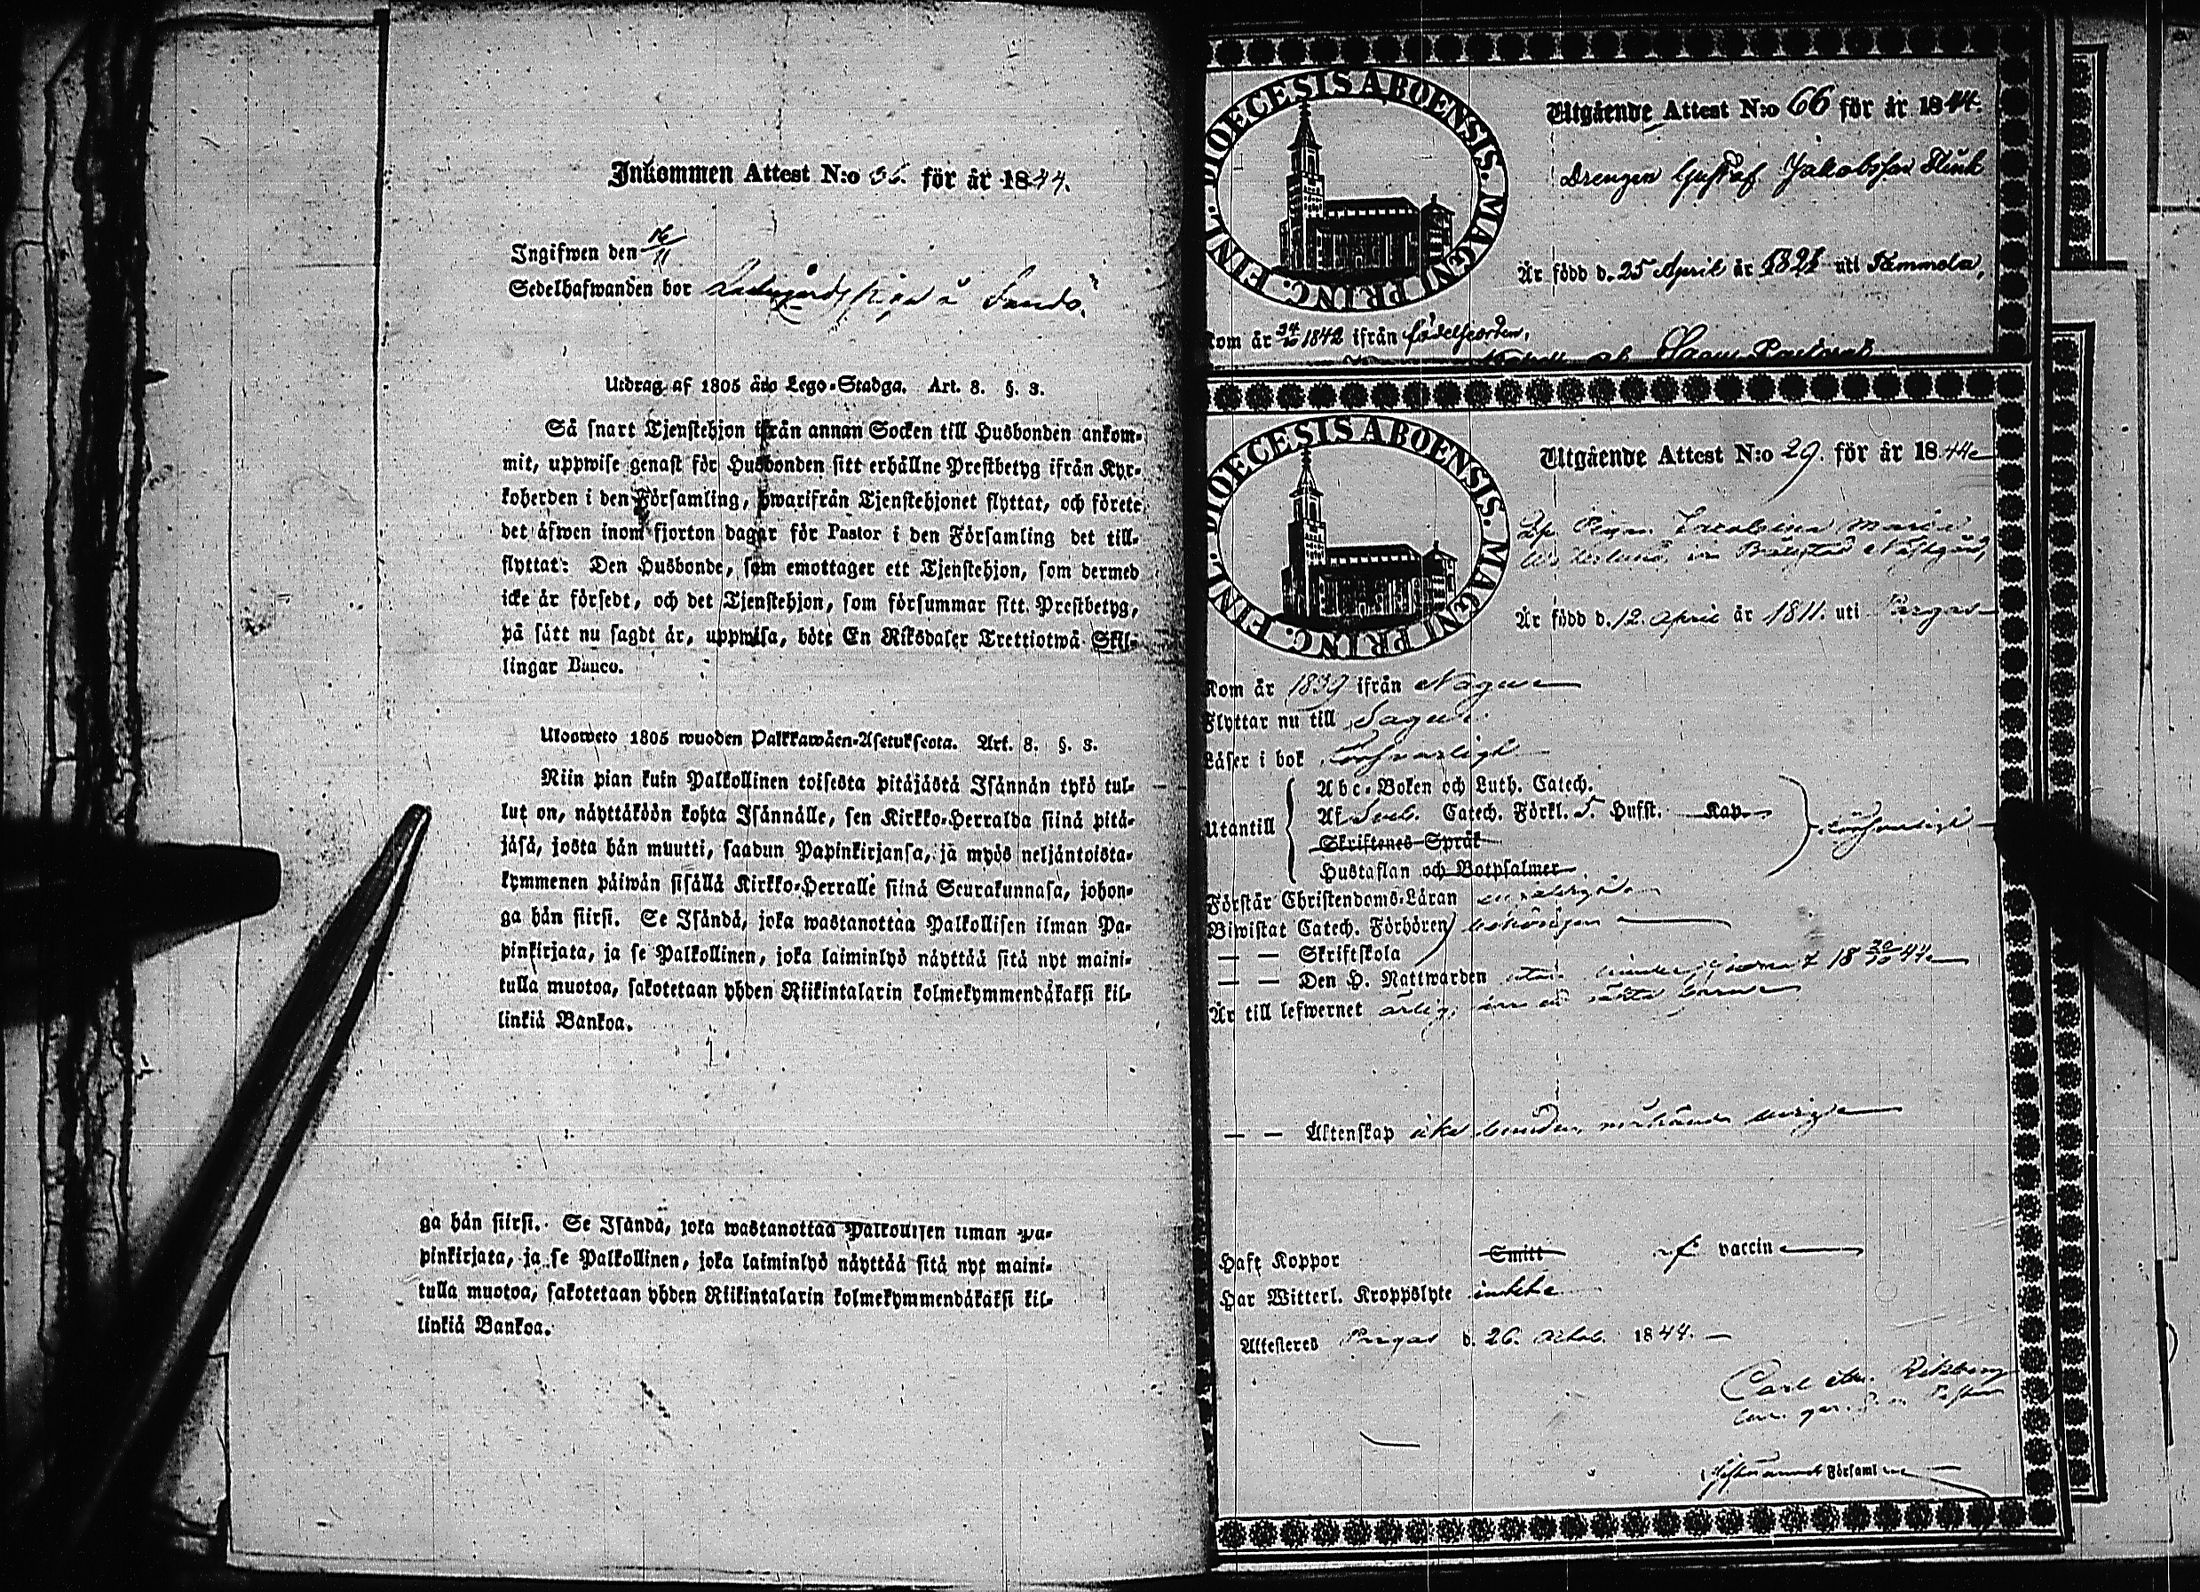 Inkommen Attest N:o 36. för år 1844.
Ingifwen den 16/11
Sedelhafwanden bor
Utdrag af 1805 åds Lego-Stadga. Art. 8. §. 3.
Så snart Tjenstehjon ifrån annan Socken till Husbonden ankom-
mit, uppwise genast för Husbonden sitt erhållne Prestbetyg ifrån Kyr-
koherden i den Församling, hwarifrån Tjenstehjonet flyttat, och förete
det äfwen inom fjorton dagar för Pastor i den Församling det till-
flyttat: Den Husbonde, som emottager ett Tjenstehjon, som dermed
icke är försedt, och det Tjenstehjon, som försummar sitt Prestbetyg,
på sätt nu sagdt är, uppwisa, böte En Riksdaler Trettiotwå Skil-
lingar Banco.
Ulosweto 1805 wuoden Palkkawäen-Asetuksesta. Art. 8. §. 3.
Niin pian kuin Palkollinen toisesta pitäjästä Isännän tykö tul-
lut on, näyttäköön kohta Isännälle, sen Kirkko-Herralda siinä pitä-
jäsä, josta hän muutti, saadun Papinkirjansa, ja myös neljäntoista-
kymmenen päiwän sisällä Kirkko-Herralle siinä Seurakunnasa, johon-
ga hän siirsi. Se Isändä, joka wastanottaa Palkollisen ilman Pa-
pinkirjata, ja se Palkollinen, joka laiminlyö näyttää sitä nyt maini-
tulla muotoa, sakotetaan yhden Riikintalarin kolmekymmendäkaksi kil-
linkiä Bankoa.
ga hän siirsi. Se Isändä, joka wastanottaa Palkollisen ilman Pa-
pinkirjata, ja se Palkollinen, joka laiminlyö näyttää sitä nyt maini-
tulla muotoa, sakotetaan yhden Riikintalarin kolmekymmendäkaksi kil-
linkiä Bankoa.
DIOECESIS ABOENSIS. MAGNI PRINC. FINL.
Utgående Attest N:o 66 för år 1844.
Drengen Gustaf Jakobsson
Är född d. 25 April år 1821 uti Tammela,
Kom år 24/10 1842 ifrån födelseorten,
DIOECESIS ABOENSIS. MAGNI PRINC. FINL.
Utgående Attest N:o 29. för år 1844
Pigan Maria
Är född d. 12. April år 1811. uti Pargas
Kom år 1839 ifrån Nagu
Flyttar nu till Sagu
Läser i bok försvarligt
Utantill
Abc-Boken och Luth. Catech.
Af Sveb. Catech. Förkl. 5. Hufst. Kap.
Skriftenes Språk
Hustaflan och Botpsalmer
försvarligt
Förstår Christendoms-Läran
Biwistat Catech. Förhören
— — Skriftskola
— — Den H. Nattwarden 18 20/10 44
Är till lefwernet ärlig,
— — Äktenskap
Haft Koppor Smitt af vaccin
Har Witterl. Kroppslyte
Attesteres Pargas d. 26. Octob. 1844.
Carl
Församl